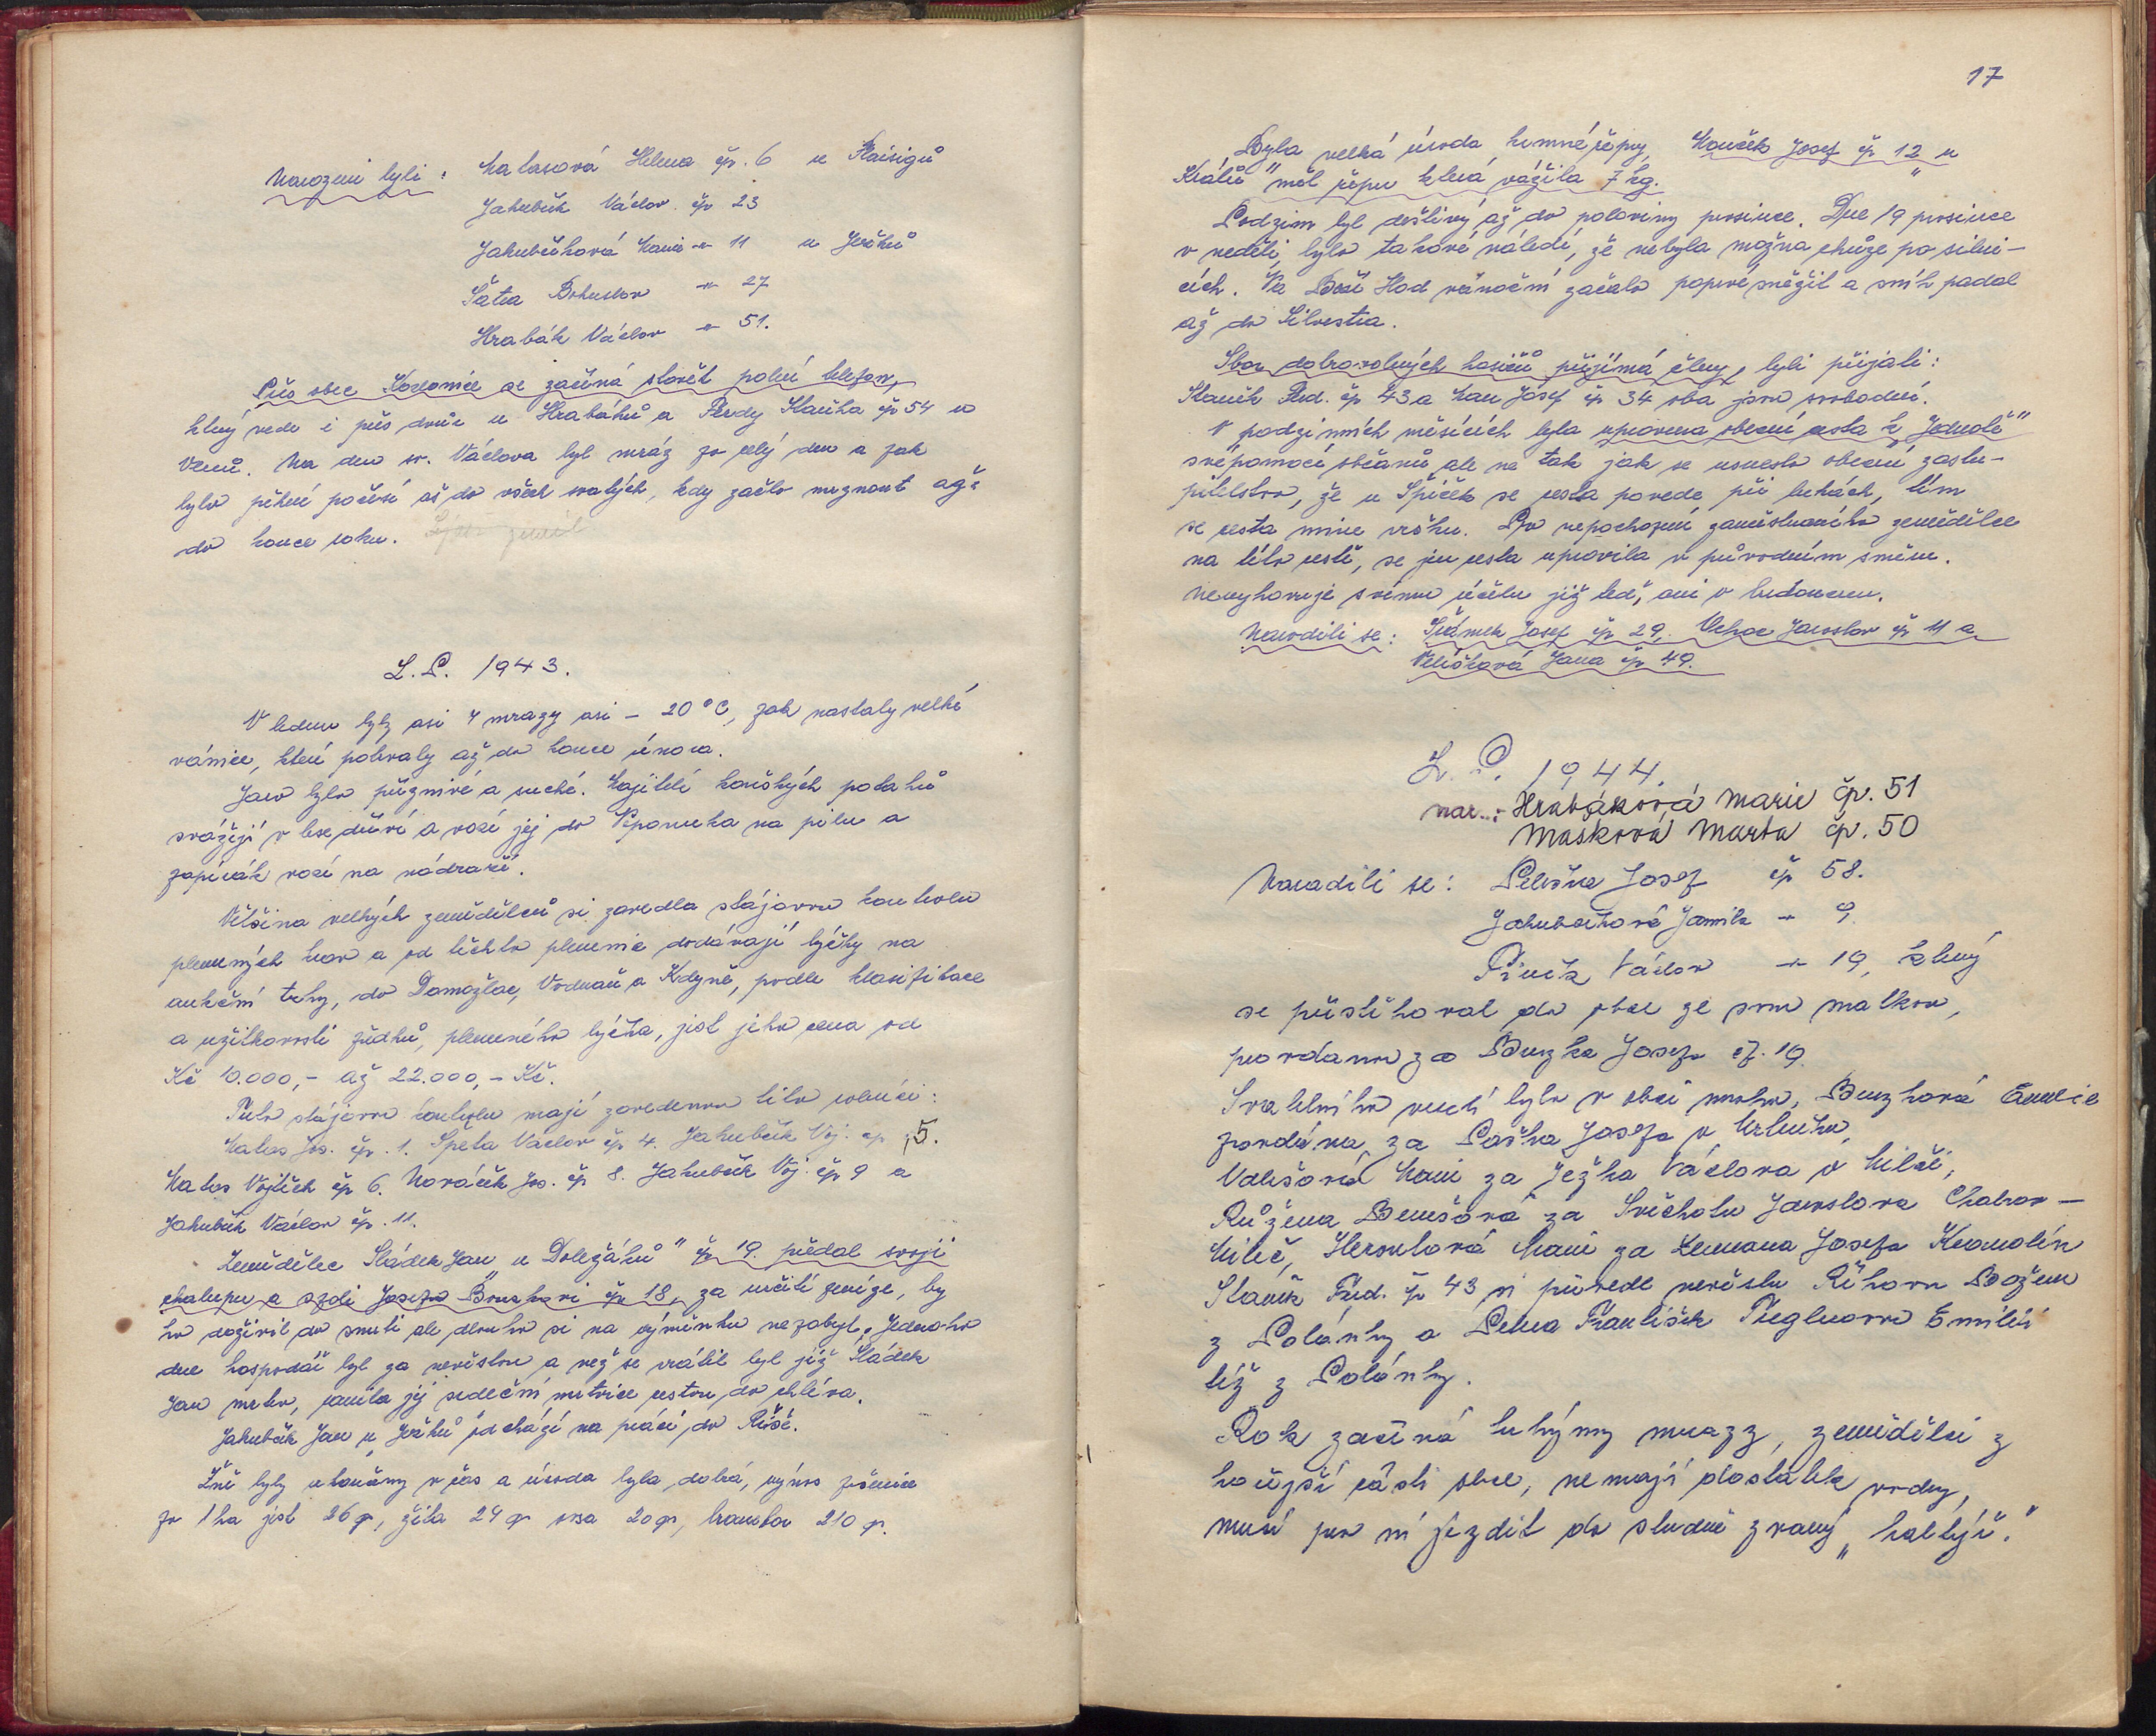 Narozeni byli: Matasová Helena čp. 6 u Raisigů
Jakubčík Václav čp 23
Jakubčíková Marie -"- 11 u Ježků
Šatra Bohuslav -"- 27
Hrabák Václav -"- 51.
Přes obec Kozlovice se začíná stavět polní telefon,
který vede i přes dvůr u Hrabáků a Ferdy Slaníka čp 54 u
Vrků. Na den sv. Václava byl mráz po celý den a pak
bylo pěkné počasí až do všech svatých, kdy začlo mrznout až
do konce roku.
L.P. 1943.
V lednu byly asi 4 mrazy asi - 20°C, pak nastaly velké
vánice, které potrvaly až do konce února.
Jaro bylo příznivé a suché. Majitelé koňských potahů
svážejí v lese dříví a vozí jej do Nepomuka na pilu a
papírák vozí na nádraží.
Většina velkých zemědělců si zavedla stájovou kontrolu
plemených krav a od těchto plemenic dodávají býčky na
aukční trhy, do Domažlic, Vodňan a Kdyně, podle klasifikace
a užitkovosti předků, plemeného býčka, jest jeho cena od
Kč 10.000,- až 22.000,- Kč.
Tuto stájovou kontrolu mají zavedenou tito rolníci:
Matas Jos. čp. 1. Špeta Václav čp 4. Jakubčík Voj. čp 5.
Matas Vojtěch čp 6. Nováček Jos. čp 8. Jakubčík Voj. čp 9 a
Jakubčík Václav čp. 11.
Zemědělec Sládek Jan „u Doležálů" čp 19. předal svoji
chalupu a pole Josefu Bruzkovi čp 18, za určité peníze, by
ho doživil do smrti ale dlouho si na výměnku nezobyl. Jednoho
dne hospodář byl za nevěstou a než se vrátil byl již Sládek
Jan mrtev, ranila jej srdeční mrtvice cestou do chléva.
Jakubčík Jan „u Ježků" odchází na práci do Říše.
Žně byly ukončeny v čas a úroda byla dobrá, výnos pšenice
po 1 ha jest 26 q, žita 24 q ovsa 20 q, brambor 210 q.
17
Byla velká úroda krmné řepy, Kouřek Josef čp 12 „u
Králů" měl řepu která vážila 7 kg.
Podzim byl deštivý až do poloviny prosince. Dne 19 prosince
v neděli bylo takové náledí, že nebyla možna chůze po silni-
cích. Na Boží Hod vánoční začalo poprvé sněžit a sníh padal
až do Silvestra.
Sbor dobrovolných hasičů přijímá členy, byli přijati:
Slaník Ferd. čp 43 a Kan Josef čp 34 oba jsou svobodní.
V podzimních měsících byla upravena obecní cesta k „Jednotě"
svépomocí občanů ale ne tak jak se usneslo obecní zastu-
pitelstvo, že u Špiček se cesta povede při loukách, tím
se cesta mine vršku. Po nepochopení zaměstnaného zemědělce
na této cestě, se jen cesta upravila v původním směru.
Nevyhovuje svému účelu již teď, ani v budoucnu.
Narodili se: Šrámek Josef čp 29, Uchac Jaroslav čp 11 a
Velíšková Jana čp 49.
L.P. 1944.
nar.: Hrabáková Marie čp. 51
Mašková Marta čp. 50
Naradili se: Peleška Josef čp 58.
Jakubčíková Jamila -"- 9.
Piník Václav -"- 19, který
se přistěhoval do obce ze svou matkou,
provdanou za Bruzka Josefa čp. 19.
Svatebního veselí bylo v obci mnoho, Bruzková Emilie
provdána za Paška Josefa v
Valešová Marie za Ježka Václava v Milči,
Růžena Benešová za Svěchotu Jaroslava Chabov-
Mileč, Marie za Zemana Josefa
Slaník Ferd. čp 43 si přivedl nevěstu Říhovu Boženu
z Polánky a František Emilii
též z Polánky.
Rok začíná tuhými mrazy, zemědělci z
hořejší části obce, nemají dostatek vody,
musí pro ni jezdit do studně zvaný „haltýř."